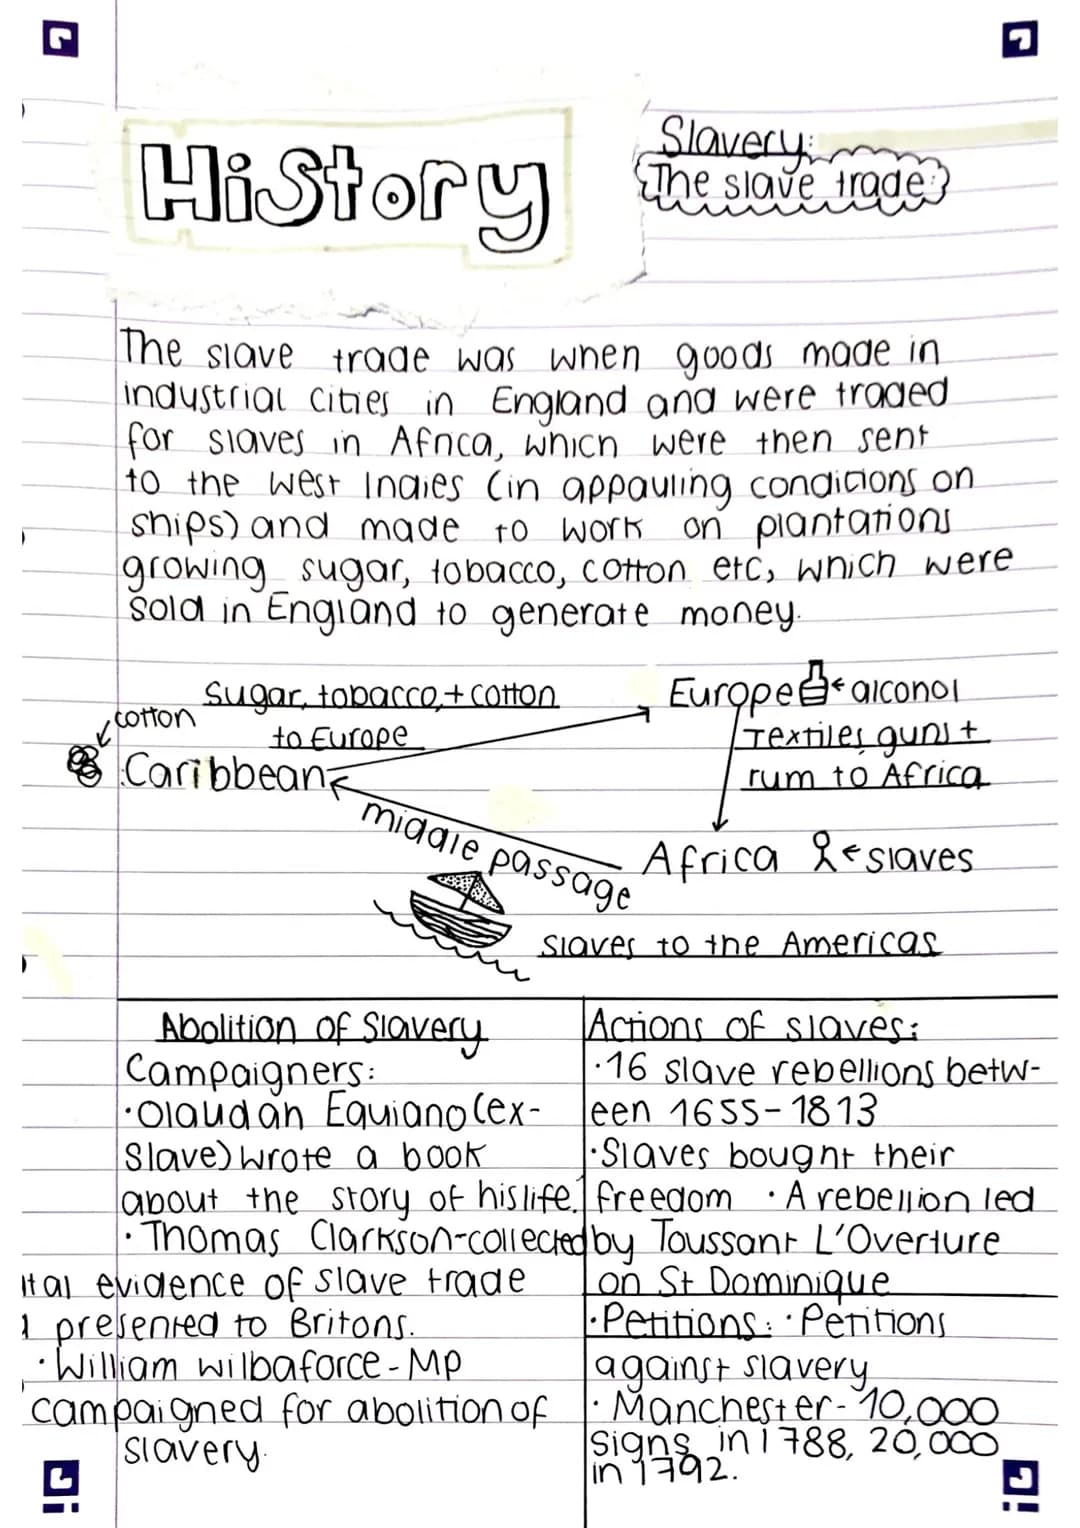 HiStory
Slavery:
The slave trade:
The slave trade was when goods made in
industrial cities in England and were traded
for slaves in Africa, which were then sent
to the West Indies (in appauling conditions on
ships) and made to work on plantations
growing sugar, tobacco, cotton etc, which were
sold in England to generate money.
Sugar, tobacco, + cotton
to Europe
cotton
Caribbean
Europe
alcohol
Textiles, guns +
rum to Africa
middle passage
Africa
slaves
slaves to the Americas
Abolition of Slavery
Campaigners:
·Olaudah Equiano (ex-
Slave) wrote a book
about the story of his life.
· Thomas Clarkson-collected
ital evidence of slave trade
presented to Britons.
· William wilbaforce - MP
campaigned for abolition of
slavery.
Actions of slaves:
·16 slave rebellions betw-
een 1655-1813
·Slaves bought their
freedom · A rebellion led
by Toussant L'Overture
on St Dominique
·Petitions: ·Petitions
against slavery
· Manchester- 10,000
signs in 1788, 20,000
in 1792.